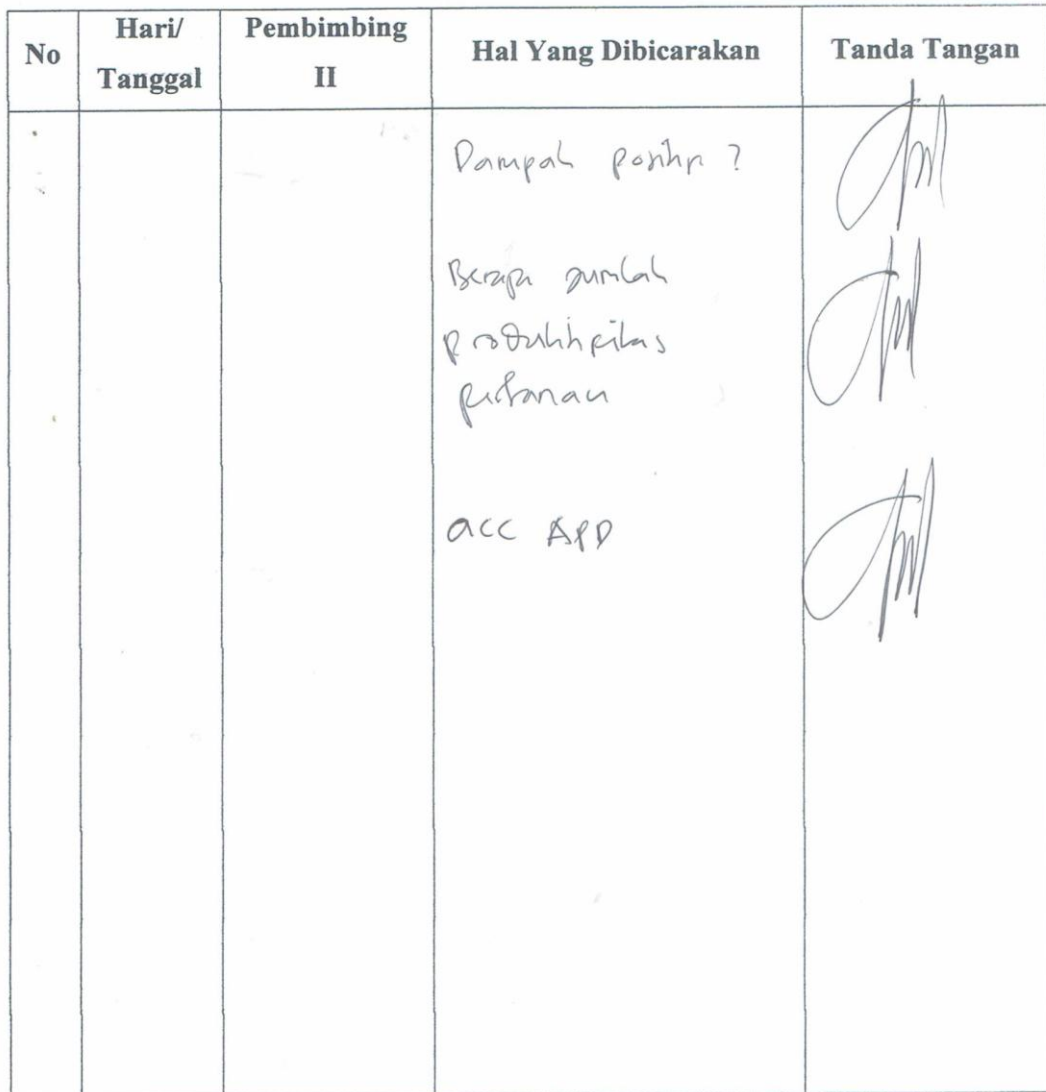 No
Hari/
Tanggal
Pembimbing
II
Hal Yang Dibicarakan
Tanda Tangan
Dampak positip ?
Berapa jumlah
produktifitas
pertanian
acc APD